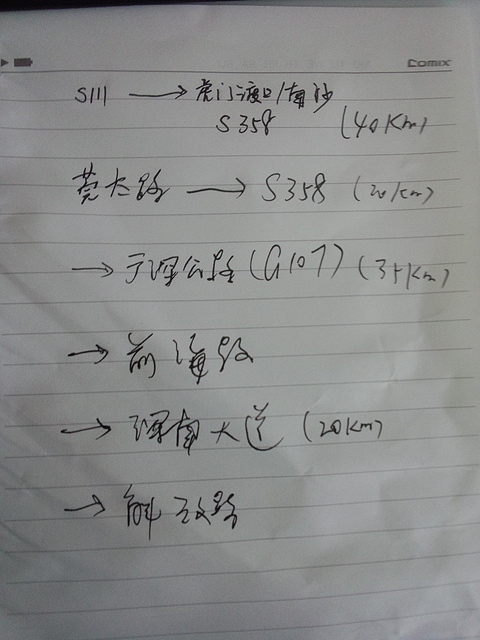 Comix
S111 → 虎门渡口/南沙
S358 (40Km)
莞太路 → S358 (20km)
→ 广深公路(G107) (35Km)
→ 前海路
→ 深南大道 (20Km)
→ 解放路